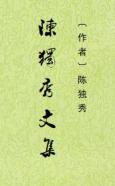 〔作者〕陈独秀
陳獨秀文集